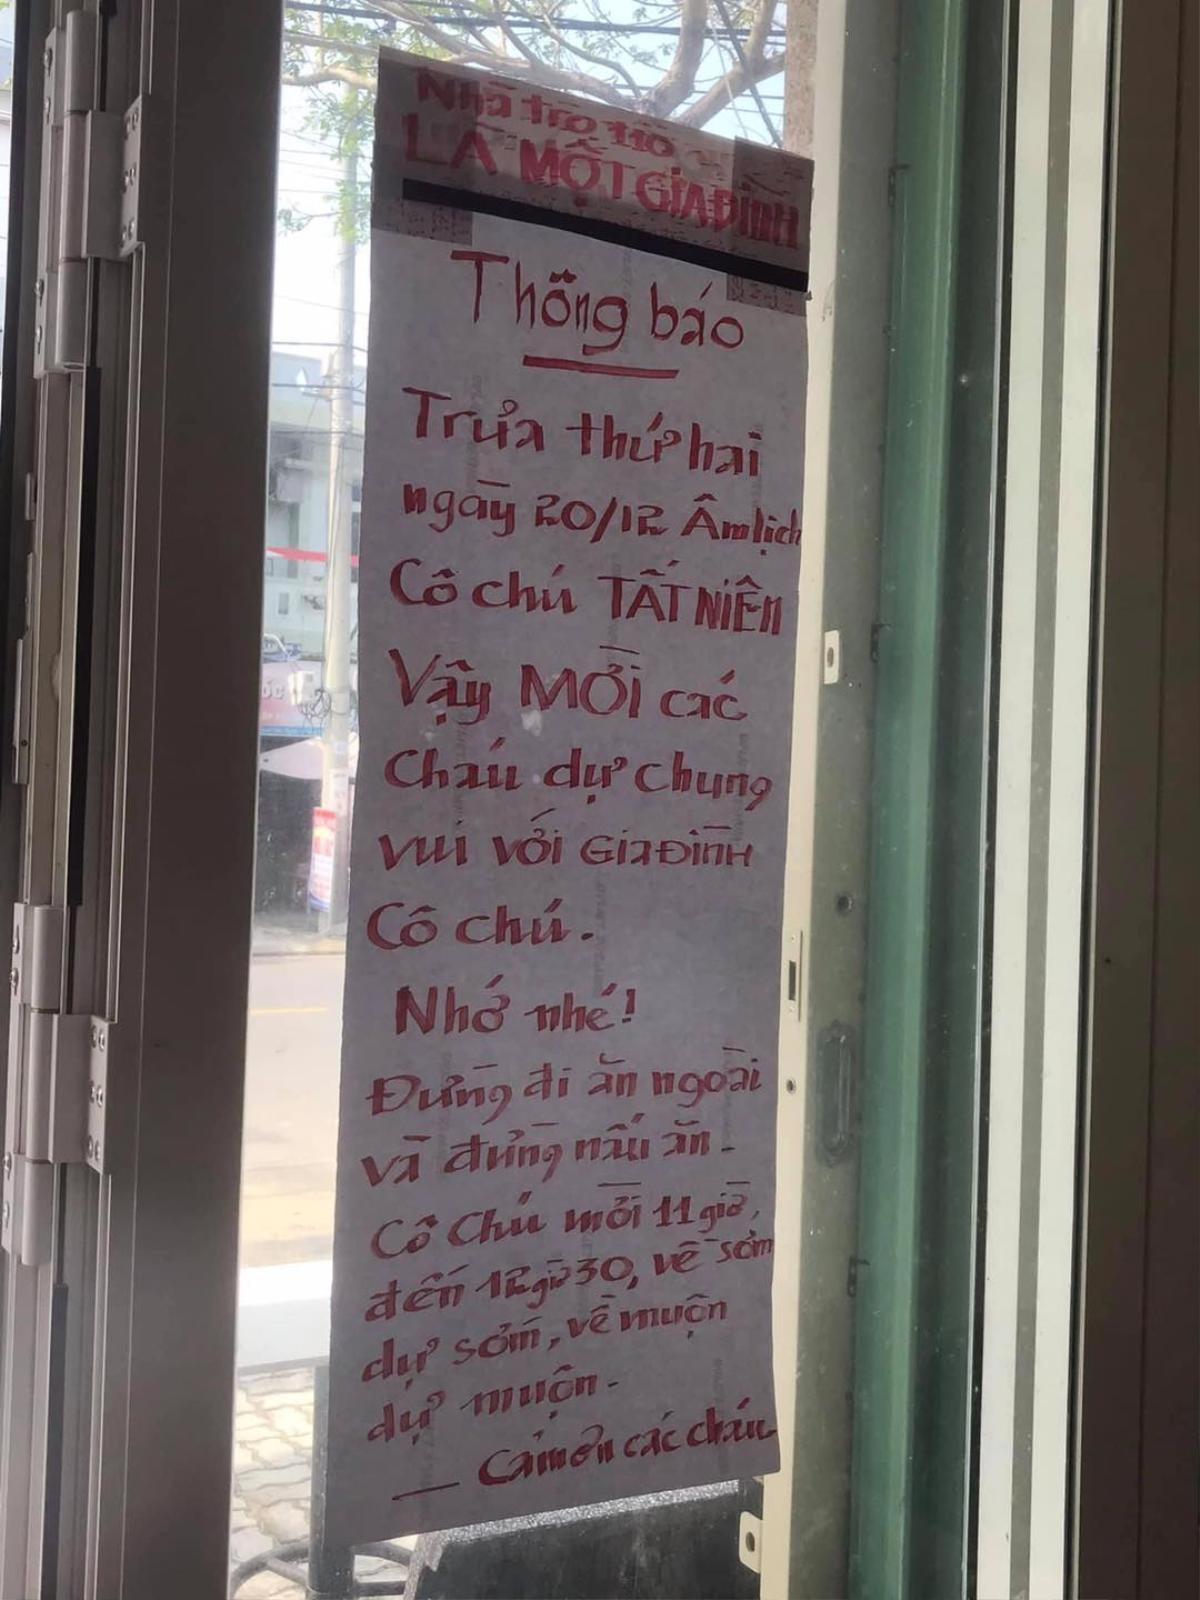 Nhà trọ 110
LÀ MỘT GIA ĐÌNH
Thông báo
Trưa thứ hai
ngày 20/12 Âm lịch
Cô chú TẤT NIÊN
Vậy MỜI các
Cháu dự chung
vui với GIA ĐÌNH
Cô chú.
Nhớ nhé!
Đừng đi ăn ngoài
và đừng nấu ăn.
Cô Chú mời 11 giờ,
đến 12 giờ 30, về sớm
dự sớm, về muộn
dự muộn.
— Cảm ơn các cháu